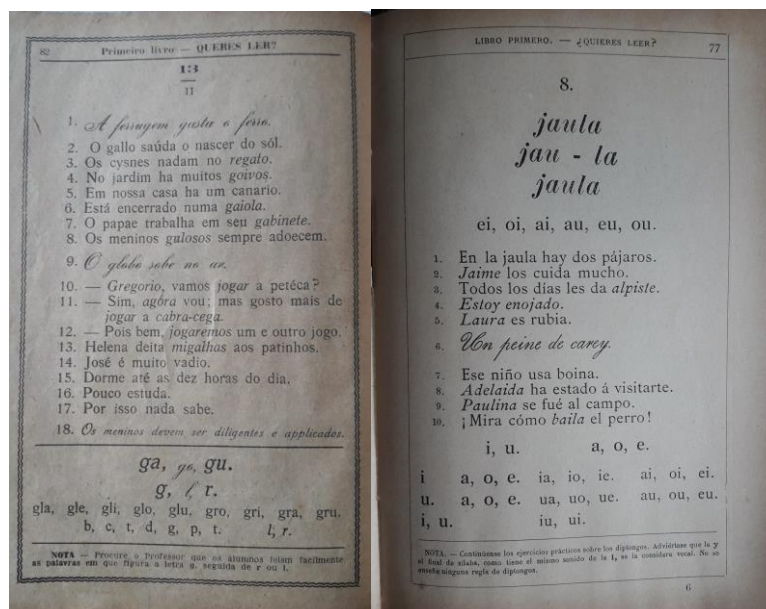 82 Primeiro livro — QUERES LER?
13
II
1. A ferrugem gasta o ferro.
2. O gallo saúda o nascer do sól.
3. Os cysnes nadam no regato.
4. No jardim ha muitos goivos.
5. Em nossa casa ha um canario.
6. Está encerrado numa gaiola.
7. O papae trabalha em seu gabinete.
8. Os meninos gulosos sempre adoecem.
9. O globo sobe no ar.
10. — Gregorio, vamos jogar a petéca?
11. — Sim, agóra vou; mas gosto mais de
jogar a cabra-cega.
12. — Pois bem, jogaremos um e outro jogo.
13. Helena deita migalhas aos patinhos.
14. José é muito vadio.
15. Dorme até as dez horas do dia.
16. Pouco estuda.
17. Por isso nada sabe.
18. Os meninos devem ser diligentes e applicados.
ga, go, gu.
g, l, r.
gla, gle, gli, glo, glu, gro, gri, gra, gru.
b, c, t, d, g, p, t. l, r.
NOTA — Procure o Professor que os alumnos leiam facilmente
as palavras em que figura a letra g, seguida de r ou l.
LIBRO PRIMERO. — ¿QUIERES LEER? 77
8.
jaula
jau - la
jaula
ei, oi, ai, au, eu, ou.
1. En la jaula hay dos pájaros.
2. Jaime los cuida mucho.
3. Todos los días les da alpiste.
4. Estoy enojado.
5. Laura es rubia.
6. Un peine de carey.
7. Ese niño usa boina.
8. Adelaida ha estado á visitarte.
9. Paulina se fué al campo.
10. ¡Mira cómo baila el perro!
i, u. a, o, e.
i a, o, e. ia, io, ie. ai, oi, ei.
u. a, o, e. ua, uo, ue. au, ou, eu.
i, u. iu, ui.
NOTA. — Continúense los ejercicios prácticos sobre los diptongos. Adviértase que la y
al final de sílaba, como tiene el mismo sonido de la i, se la considera vocal. No se
enseñe ninguna regla de diptongos.
6